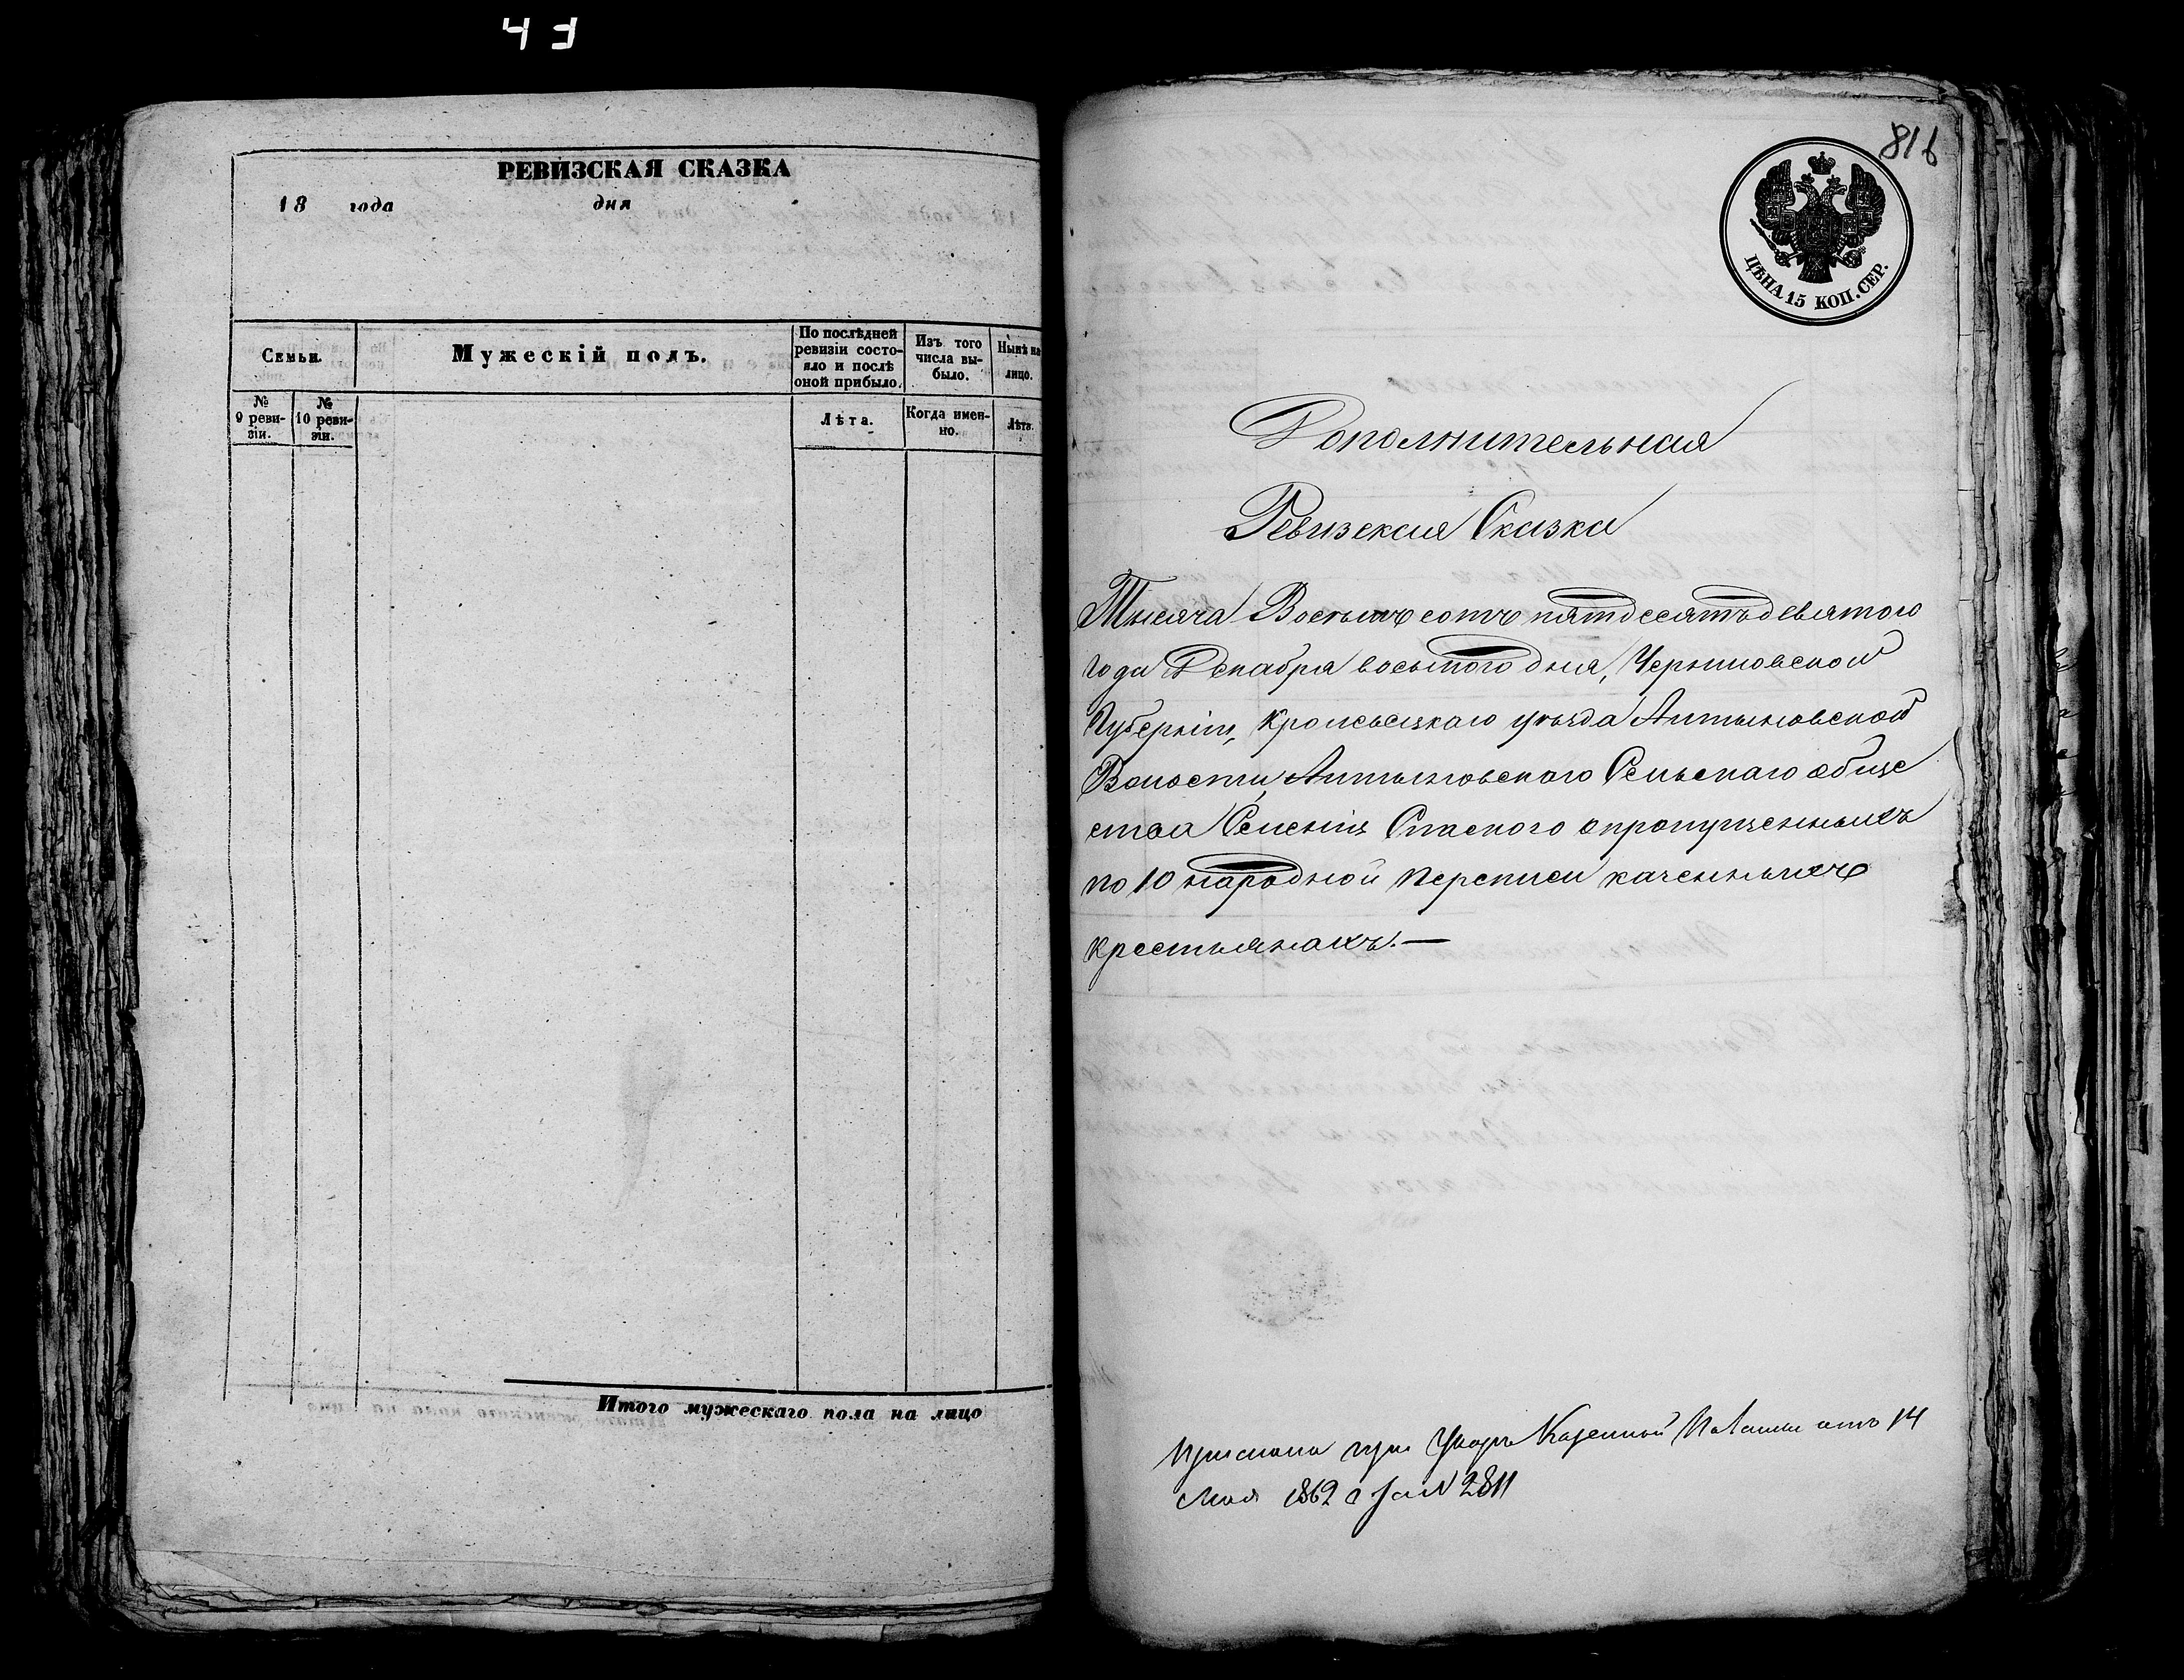 РЕВИЗСКАЯ СКАЗКА
18 года дня
Семьи.
Мужескій полъ.
По послѣдней ревизіи состо-яло и послѣ оной прибыло.
Изъ того числа вы-было.
Нынѣ на лицо.
№ 9 реви-зіи.
№ 10 реви-зіи.
Лѣта.
Когда имен-но.
Лѣта.
Итого мужескаго пола на лицо
816
ЦѢНА 15 КОП. СЕР.
Дополнительная
Ревизская Сказка
Тысяча Восемь сотъ пятдесятъ девятого
года Декабря восьмого дня, Черниговской
Губерніи, Кролевецкаго уѣзда Алтыновской
Волости, Алтыновского Сельскаго обще
ства Селенія Спаского о пропущенныхъ
по 10 народной переписи казенныхъ
крестьянахъ.—
Прислана при Указѣ Казенной Палаты отъ 14
Мая 1862 г за № 2811